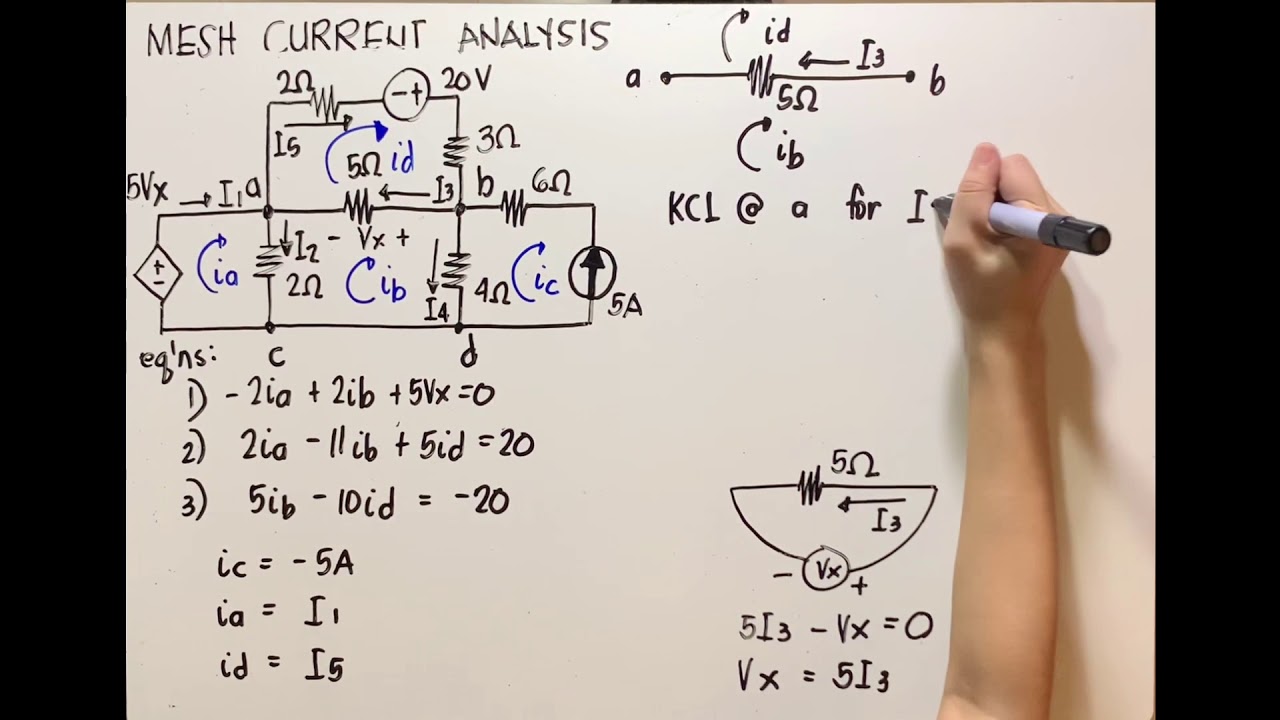 MESH CURRENT ANALYSIS
2Ω
- +
20V
I5
id
3Ω
5Ω
5Vx
I1
a
I3
b
6Ω
I2
- Vx +
+
-
ia
2Ω
ib
I4
4Ω
ic
5A
c
d
eq'ns:
1) -2ia + 2ib + 5Vx = 0
2) 2ia - 11ib + 5id = 20
3) 5ib - 10id = -20
ic = -5A
ia = I1
id = I5
id
I3
a
b
5Ω
ib
KCL @ a for I
5Ω
I3
- Vx +
5I3 - Vx = 0
Vx = 5I3